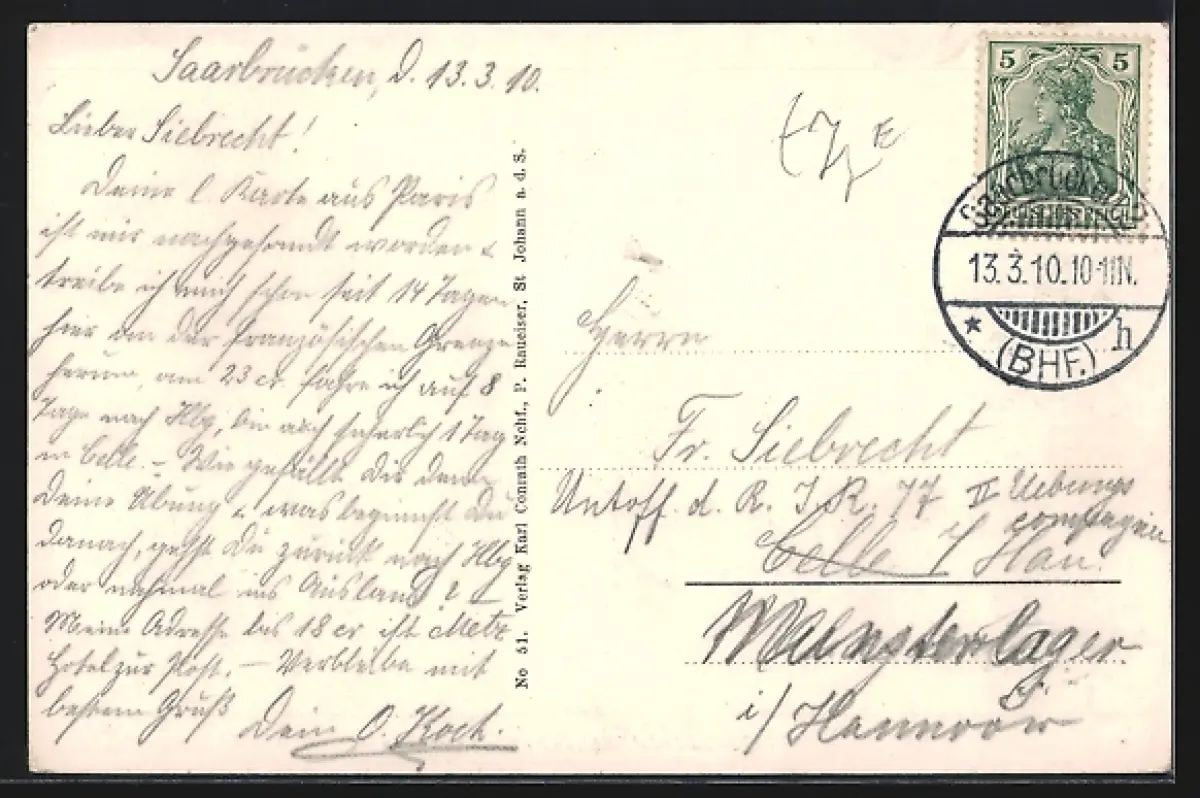 Saarbrücken, d. 13.3.10.
Lieber Siebrecht!
Deine l. Karte aus Paris
ist mir nachgesandt worden &
treibe ich mich schon seit 14 Tagen
hier an der französischen Grenze
herum, am 23 cr. fahre ich auf 8
Tage nach Hbg, bin auch sicherlich 1 Tag
in Celle. – Wie gefällt Dir denn
Deine Übung & was beginnst Du
danach, gehst Du zurück nach Hbg
oder nochmal ins Ausland? –
Meine Adresse bis 18 cr ist Metz
Hotel zur Post. – Verbleibe mit
bestem Gruß
Dein O. Koch.
No 51. Verlag Karl Conrath Nchf., P. Raueiser, St Johann a. d. S.
5 5
Saarbrücken
13.3.10.10-11N.
* (BHF.) h
Herrn
Fr. Siebrecht
Untoff. d. R. I. R. 77 II Uebungs
compagnie
Celle i/ Han.
Munsterlager
i/ Hannover